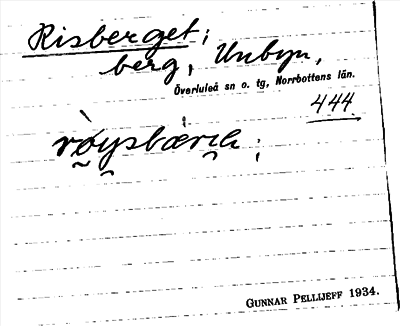 Risberget;
berg, Unbyn,
Överluleå sn o. tg, Norrbottens län.
444
GUNNAR PELLIJEFF 1934.